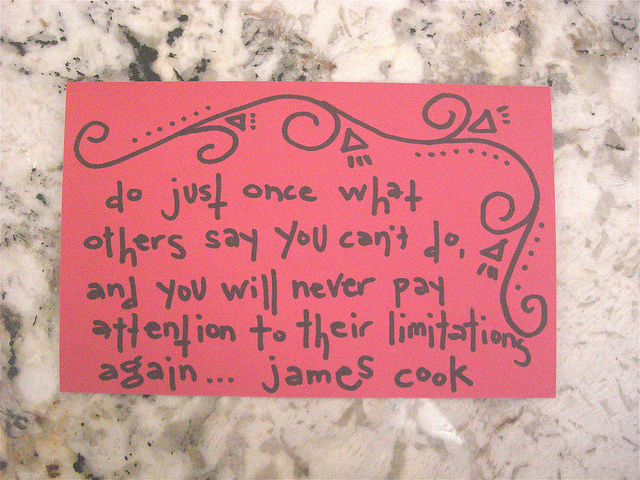 do just once what
others say you can't do,
and you will never pay
attention to their limitations
again... james cook